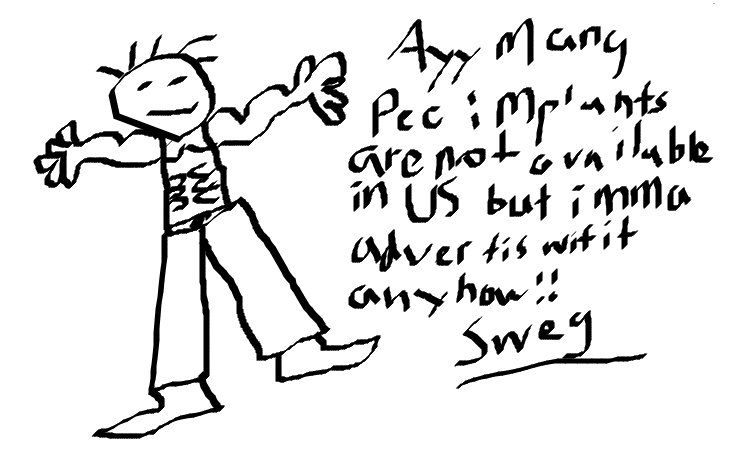 Ayy Mang
Pec implants
are not available
in US but imma
advertis wit it
anyhow!!
Sweg